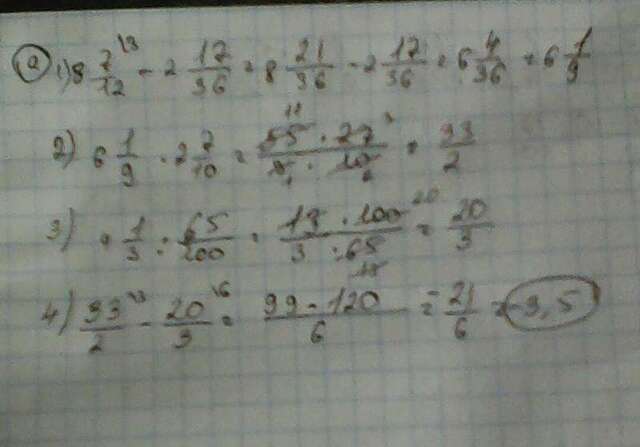 а 1) 8 7/12 \3 - 2 17/36 = 8 21/36 - 2 17/36 = 6 4/36 = 6 1/9
2) 6 1/9 · 2 7/10 = 55 · 27 / 9 · 10 = 33/2
3) 4 1/3 : 65/100 = 13 · 100 / 3 · 65 = 20/3
4) 33/2 \3 - 20/3 \6 = 99 - 120 / 6 = -21/6 = -3,5